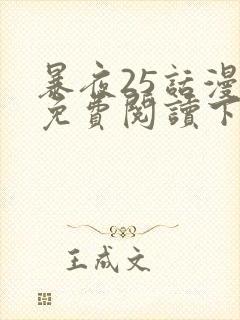 暴夜25話漫
免費閱讀下
王成文